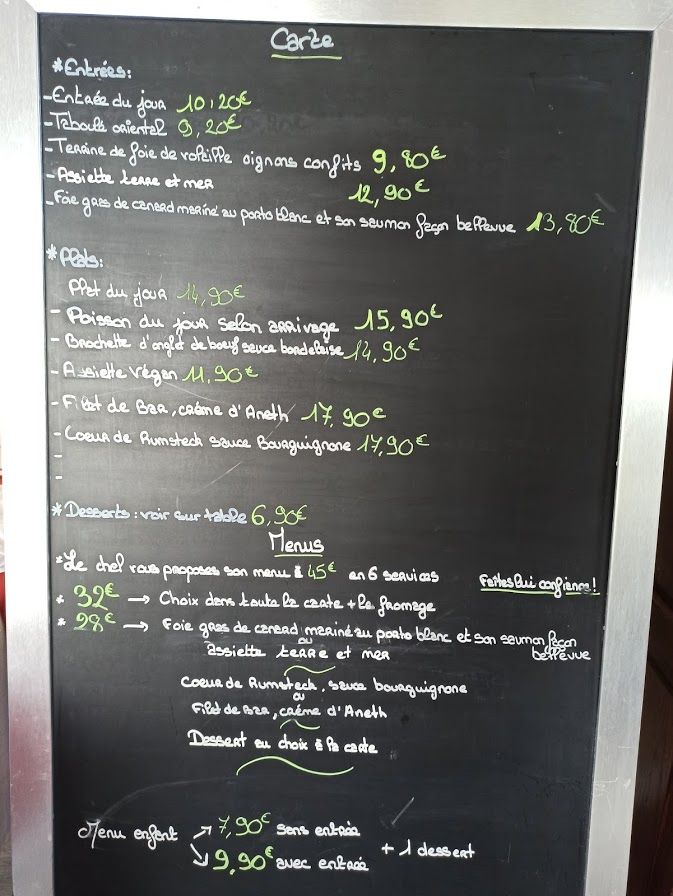 Carte
*Entrées:
-Entrée du jour 10,20€
-Taboulé oriental 9,20€
-Terrine de foie de volaille oignons confits 9,80€
-Assiette terre et mer 12,90€
-Foie gras de canard mariné au porto blanc et son saumon façon bellevue 13,80€
*Plats:
Plat du jour 14,90€
- Poisson du jour selon arrivage 15,90€
- Brochette d'onglet de boeuf sauce bordelaise 14,90€
- Assiette végan 11,90€
- Filet de Bar, crème d'Aneth 17,90€
- Coeur de Rumsteck sauce Bourguignone 17,90€
-
-
*Desserts: voir sur table 6,90€
Menus
*Le chef vous proposes son menu à 45€ en 6 services Faites lui confiance!
* 32€ → Choix dans toute la carte + le fromage
* 28€ → Foie gras de canard mariné au porto blanc et son saumon façon bellevue
ou
assiette terre et mer
Coeur de Rumsteck, sauce bourguignone
ou
Filet de Bar, crème d'Aneth
Dessert au choix à la carte
Menu enfant → 7,90€ sans entrée
↘ 9,90€ avec entrée + 1 dessert